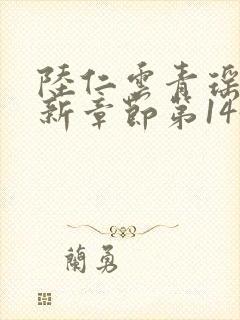 陸仁雲青瑶
新章節第14
蘭勇